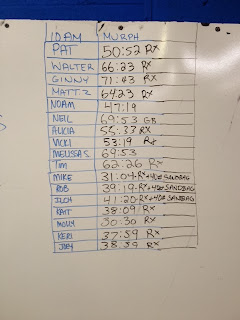 10AM MURPH
PAT 50:52 RX
WALTER 66:23 RX
GINNY 71:43 RX
MATT Z 64:23 RX
NOAM 47:19
NEIL 69:53 GB
ALICIA 55:33 RX
VICKI 53:19 RX
MELISSA S 69:53
TIM 62:26 RX
MIKE 31:04 RX+40# SANDBAG
ROB 39:19 RX+40# SANDBAG
41:20 RX+40# SANDBAG
KAIT 38:09 RX
MOLLY 30:30 RX
KERI 37:59 RX
JOEY 38:59 RX